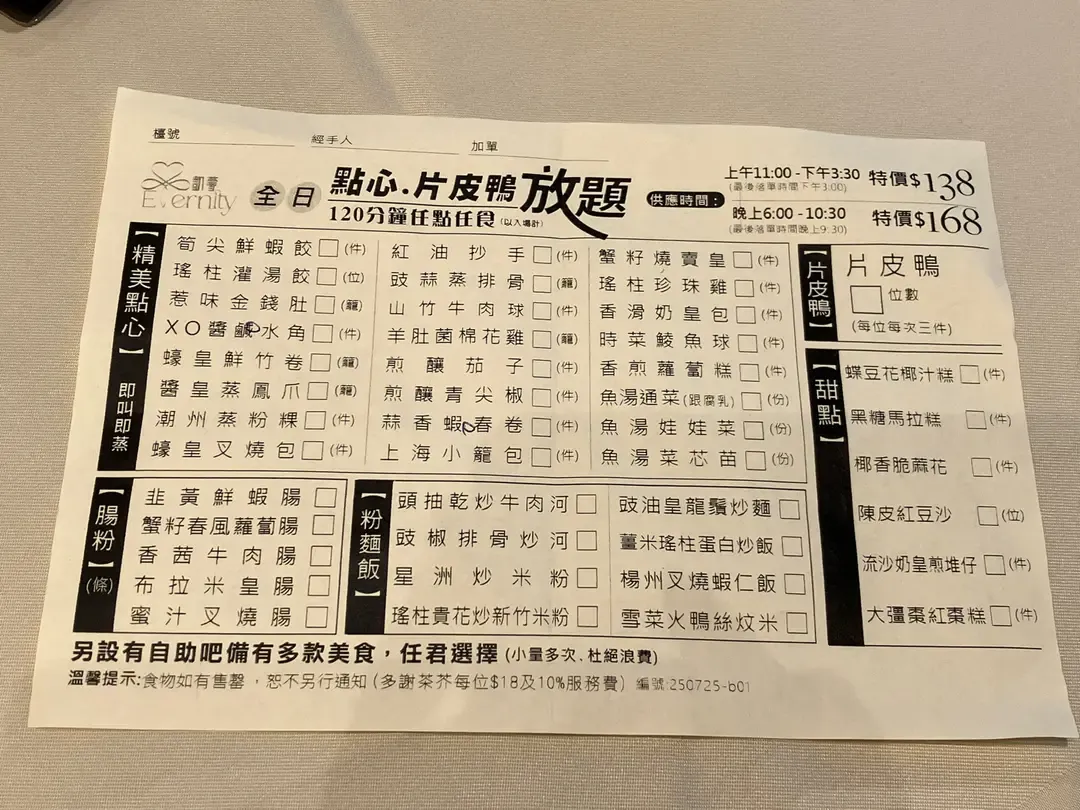 檯號 經手人 加單
凱薈
Evernity
全日
點心.片皮鴨放題
120分鐘任點任食(以入場計)
供應時間:
上午11:00 - 下午3:30 特價$138
(最後落單時間下午3:00)
晚上6:00 - 10:30 特價$168
(最後落單時間晚上9:30)
【精美點心】即叫即蒸
筍尖鮮蝦餃 (件)
瑤柱灌湯餃 (位)
惹味金錢肚 (籠)
XO醬鹹水角 (件)
蠔皇鮮竹卷 (籠)
醬皇蒸鳳爪 (籠)
潮州蒸粉粿 (件)
蠔皇叉燒包 (件)
紅油抄手 (件)
豉蒜蒸排骨 (籠)
山竹牛肉球 (件)
羊肚菌棉花雞 (籠)
煎釀茄子 (件)
煎釀青尖椒 (件)
蒜香蝦春卷 (件)
上海小籠包 (件)
蟹籽燒賣皇 (件)
瑤柱珍珠雞 (件)
香滑奶皇包 (件)
時菜鯪魚球 (件)
香煎蘿蔔糕 (件)
魚湯通菜(跟腐乳) (份)
魚湯娃娃菜 (份)
魚湯菜芯苗 (份)
【片皮鴨】
片皮鴨
位數
(每位每次三件)
【甜點】
蝶豆花椰汁糕 (件)
黑糖馬拉糕 (件)
椰香脆蔴花 (件)
陳皮紅豆沙 (位)
流沙奶皇煎堆仔 (件)
大彊棗紅棗糕 (件)
【腸粉】(條)
韭黃鮮蝦腸
蟹籽春風蘿蔔腸
香茜牛肉腸
布拉米皇腸
蜜汁叉燒腸
【粉麵飯】
頭抽乾炒牛肉河
豉椒排骨炒河
星洲炒米粉
瑤柱貴花炒新竹米粉
豉油皇龍鬚炒麵
薑米瑤柱蛋白炒飯
楊州叉燒蝦仁飯
雪菜火鴨絲炆米
另設有自助吧備有多款美食，任君選擇 (小量多次､杜絕浪費)
溫馨提示:食物如有售罄，恕不另行通知 (多謝茶芥每位$18及10%服務費) 編號:250725-b01